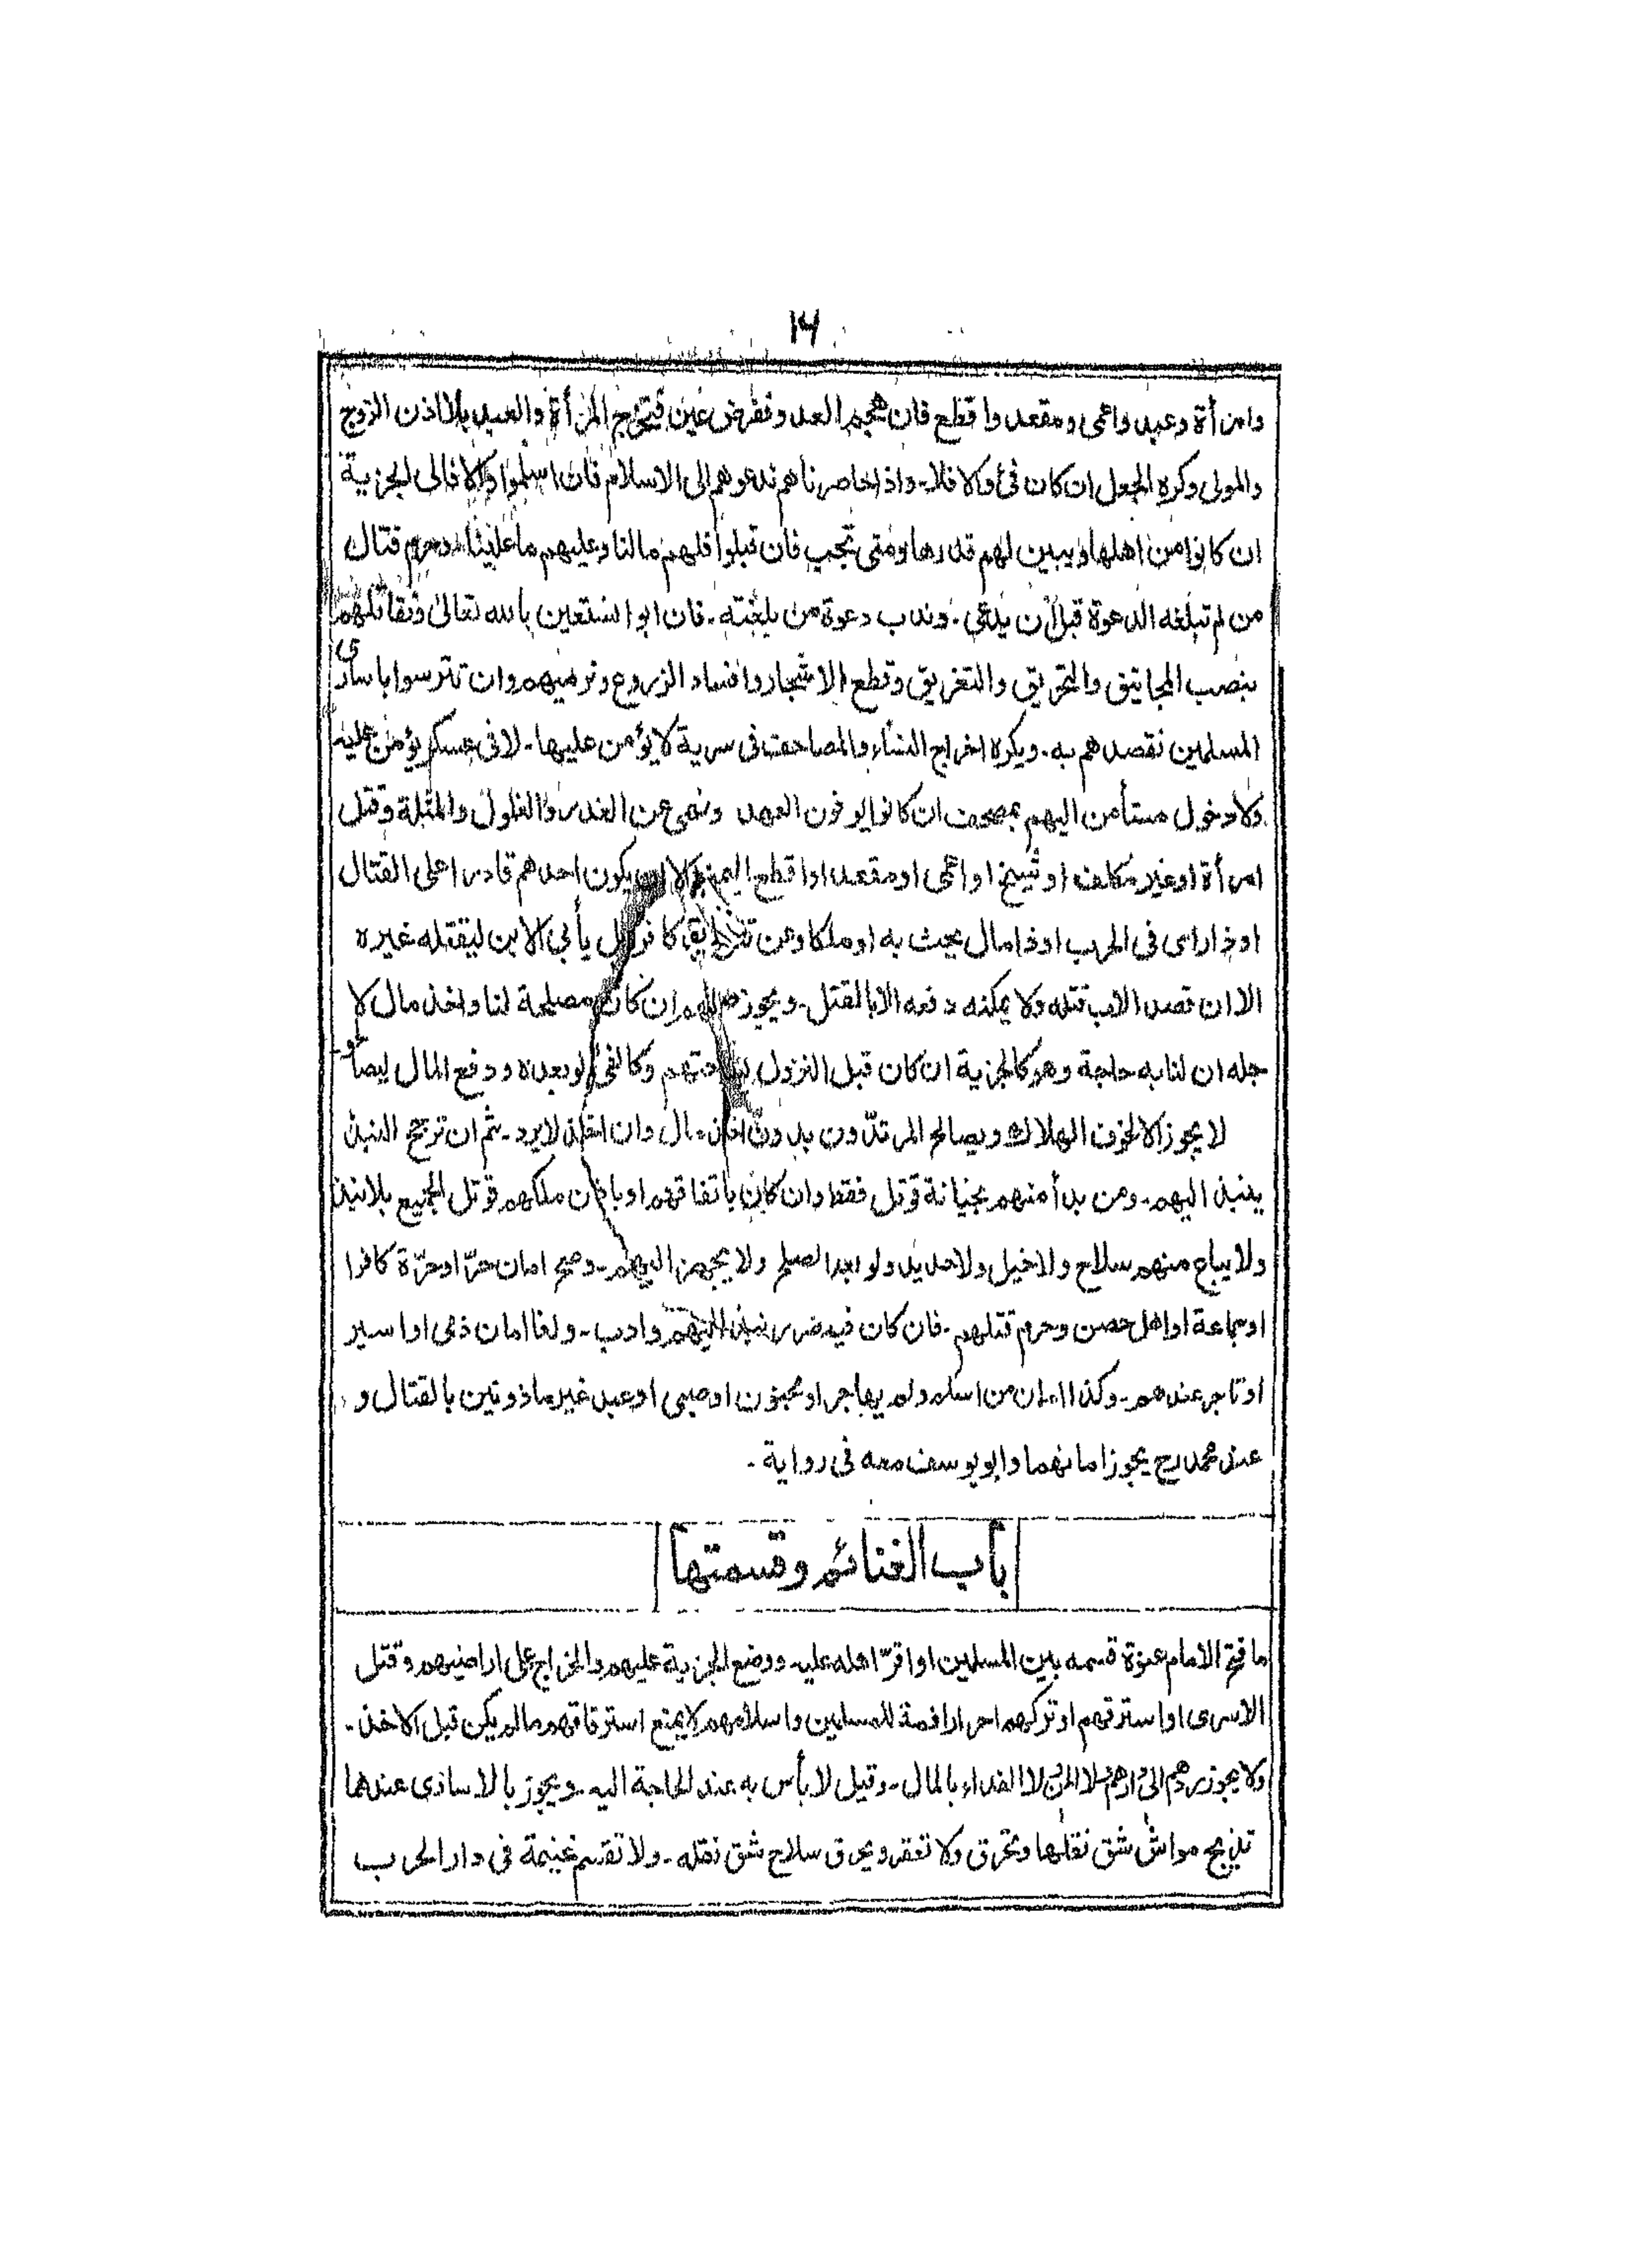 ١٦
وامرأة وعبد واعمى ومقعد واقطع فان هجم العدو ففرض عين فتخرج المرأة والعبد بلا اذن الزوج
والمولى وكره الجعل ان كان فئ والا فلا۔ واذا حاصرناهم ندعوهم الى الاسلام فان اسلموا والا فالى الجزية
ان كانوا من اهلها ويبين لهم قدرها ومتى تجب فان قبلوا فلهم مالنا وعليهم ما علينا۔ وحرم قتال
من لم تبلغه الدعوة قبل ان يدعى۔ وندب دعوة من بلغته۔ فان ابوا نستعين بالله تعالى ونقاتلهم
بنصب المجانيق والتحريق والتغريق وقطع الاشجار وافساد الزروع ونرميهم وان تترسوا باسارى
المسلمين نقصدهم به۔ ويكره اخراج النساء والمصاحف فى سرية لا يؤمن عليها۔ لا فى عسكر يؤمن عليه
ولا دخول مستأمن اليهم بمصحف ان كانوا يوفون العهد ونهى عن الغدر والغلول والمثلة وقتل
امرأة او غير مكلف او شيخ او اعمى او مقعد او اقطع اليمنى الا ان يكون احدهم قادرا على القتال
او ذا راى فى الحرب او ذا مال يحث به او ملكا وعن كافر بل يأبى الابن ليقتله غيره
الا ان قصد الاب قتله ولا يمكنه دفعه الا بالقتل۔ ويجوز صلحهم ان كان مصلحة لنا واخذ مال لا
جله ان لنا به حاجة وهو كالجزية ان كان قبل النزول بساحتهم وكالفئ لو بعده ودفع المال ليصالحو
لا يجوز الا لخوف الهلاك ويصالح المرتدون بدون اخذ مال وان اخذ لا يرد۔ ثم ان ترجح النبذ
ينبذ اليهم۔ ومن بدأ منهم بخيانة قوتل فقط وان كان باتفاقهم او باذن ملكهم قوتل الجميع بلا نبذ
ولا يباع منهم سلاح ولا خيل ولا حديد ولو بعد الصلح ولا يجهز اليهم۔ وصح امان حرّ او حرّة كافرا
او جماعة او اهل حصن وحرم قتلهم۔ فان كان فيه ضرر نبذ اليهم وادب۔ ولغا امان ذمى او اسير
او تاجر عندهم۔ وكذا امان من اسلم ولم يهاجر او مجنون او صبى او عبد غير ماذونين بالقتال و
عند محمد رح يجوز امانهما وابو يوسف معه فى رواية۔
باب الغنائم وقسمتها
ما فتح الامام عنوة قسمه بين المسلمين او اقرّ اهله عليه ووضع الجزية عليهم والخراج على اراضيهم وقتل
الاسرى او استرقهم او تركهم احرارا ذمة للمسلمين واسلامهم لا يمنع استرقاقهم مالم يكن قبل الاخذ۔
ولا يجوز ردهم الى دارهم ولا المن ولا الفداء بالمال۔ وقيل لا بأس به عند الحاجة اليه۔ ويجوز بالاسارى عندهما
تذبح مواش شق نقلها وتحرق ولا تعقر ويحرق سلاح شق نقله۔ ولا تقسم غنيمة فى دار الحرب